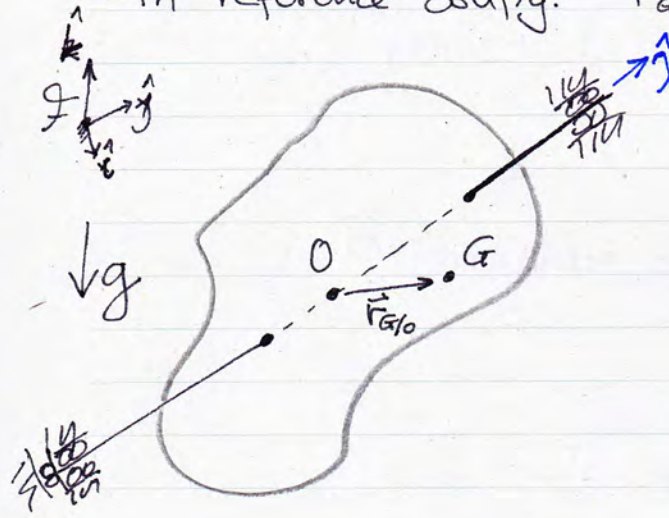 in reference config.
k̂
ĵ
F
ĵ
î
O
G
r⃗G/O
g